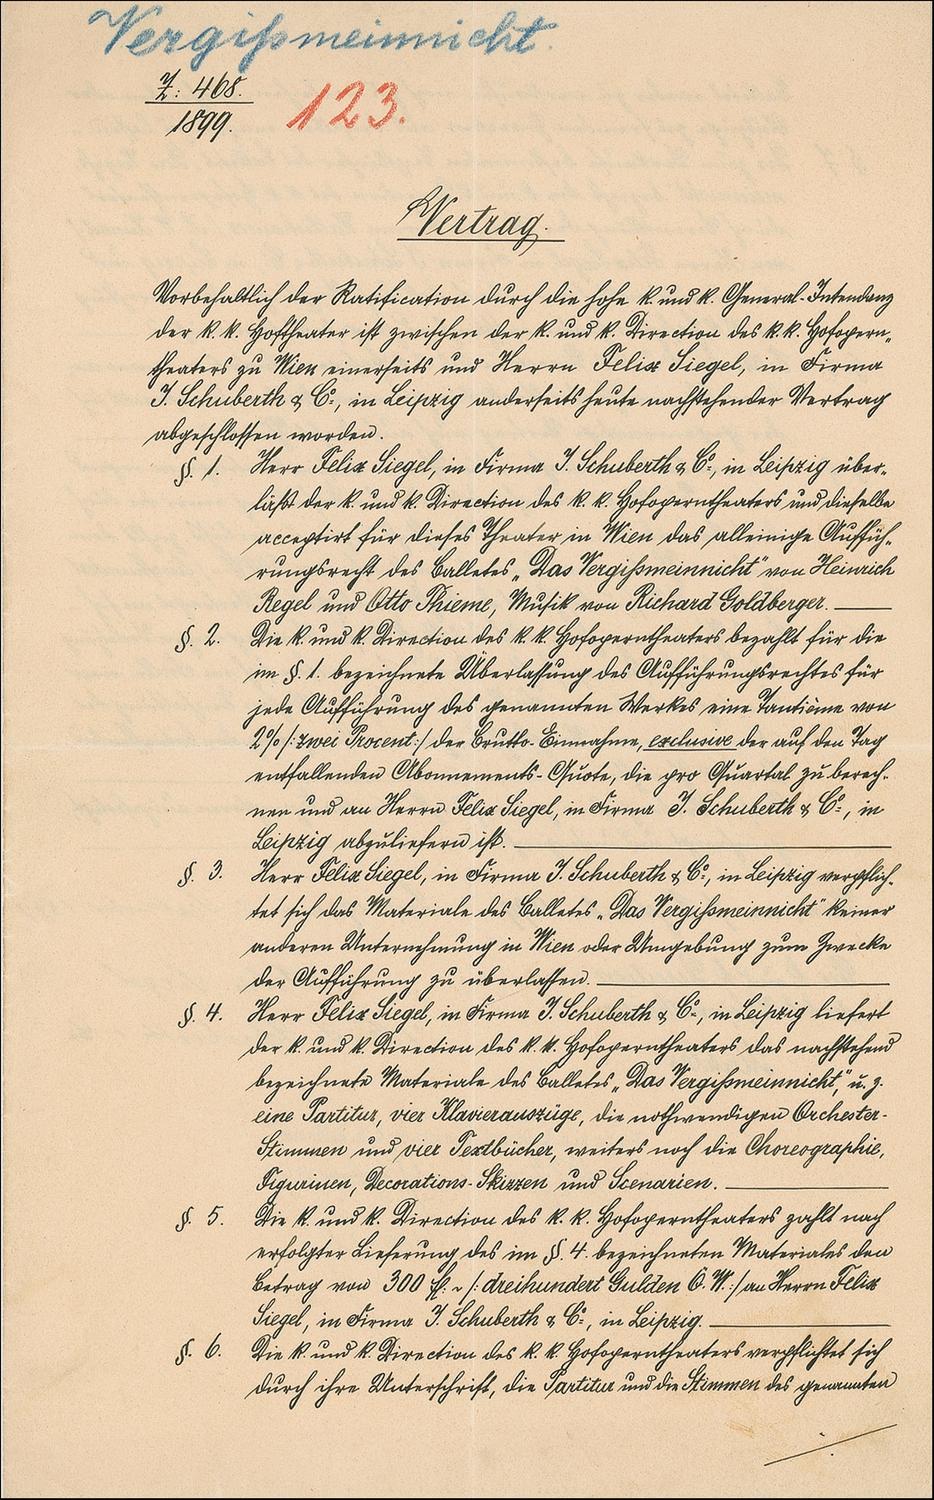 Vergißmeinnicht.
Z: 468.
1899.
123.
Vertrag.
Vorbehaltlich der Ratification durch die hohe k. und k. General-Intendanz
der k. k. Hoftheater ist zwischen der k. und k. Direction des k. k. Hofopern-
theaters zu Wien einerseits und Herrn Felix Siegel, in Firma
J. Schuberth & Co:, in Leipzig anderseits heute nachstehender Vertrag
abgeschlossen worden.
§. 1. Herr Felix Siegel, in Firma J. Schuberth & Co:, in Leipzig über-
läßt der k. und k. Direction des k. k. Hofoperntheaters und dieselbe
acceptirt für dieses Theater in Wien das alleinige Auffüh-
rungsrecht des Balletes „Das Vergißmeinnicht" von Heinrich
Regel und Otto Thieme, Musik von Richard Goldberger.
§. 2. Die k. und k. Direction des k. k. Hofoperntheaters bezahlt für die
im §. 1. bezeichnete Überlassung des Aufführungsrechtes für
jede Aufführung des genannten Werkes eine Tantième von
2% /: zwei Procent :/ der Brutto-Einnahme, exclusive der auf den Tag
entfallenden Abonnements-Quote, die pro Quartal zu berech-
nen und an Herrn Felix Siegel, in Firma J. Schuberth & Co:, in
Leipzig abzuliefern ist.
§. 3. Herr Felix Siegel, in Firma J. Schuberth & Co:, in Leipzig verpflich-
tet sich das Materiale des Balletes „Das Vergißmeinnicht" keiner
anderen Unternehmung in Wien oder Umgebung zum Zwecke
der Aufführung zu überlassen.
§. 4. Herr Felix Siegel, in Firma J. Schuberth & Co:, in Leipzig liefert
der k. und k. Direction des k. k. Hofoperntheaters das nachstehend
bezeichnete Materiale des Balletes „Das Vergißmeinnicht", u. z.
eine Partitur, vier Klavierauszüge, die nothwendigen Orchester-
Stimmen und vier Textbücher, weiters noch die Choreographie,
Figurinen, Decorations-Skizzen und Scenarien.
§. 5. Die k. und k. Direction des k. k. Hofoperntheaters zahlt nach
erfolgter Lieferung des im §. 4. bezeichneten Materiales den
Betrag von 300 fl: /: dreihundert Gulden Ö. W. :/ an Herrn Felix
Siegel, in Firma J. Schuberth & Co:, in Leipzig.
§. 6. Die k. und k. Direction des k. k. Hofoperntheaters verpflichtet sich
durch ihre Unterschrift, die Partitur und die Stimmen des genannten